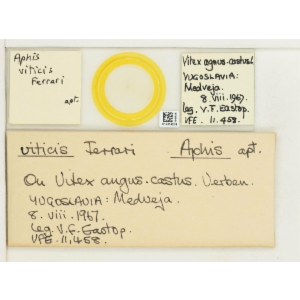 Aphis
viticis
Ferrari
apt.
Vitex agnus-castus
YUGOSLAVIA:
Medveja.
8.viii.1967.
leg. V.F. Eastop.
VFE. 11,458.
viticis Ferrari Aphis apt.
On Vitex angus-castus. Verben.
YUGOSLAVIA: Medveja.
8. viii. 1967.
leg. V.F. Eastop.
VFE. 11,458.